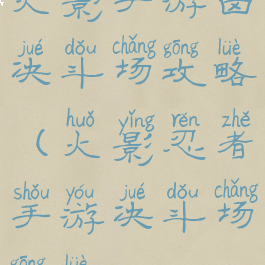 火影手游囱
jué dǒu chǎng gōng lüè
决斗场攻略
huǒ yǐng rěn zhě
（火影忍者
shǒu yóu jué dǒu chǎng
手游决斗场
gōng lüè